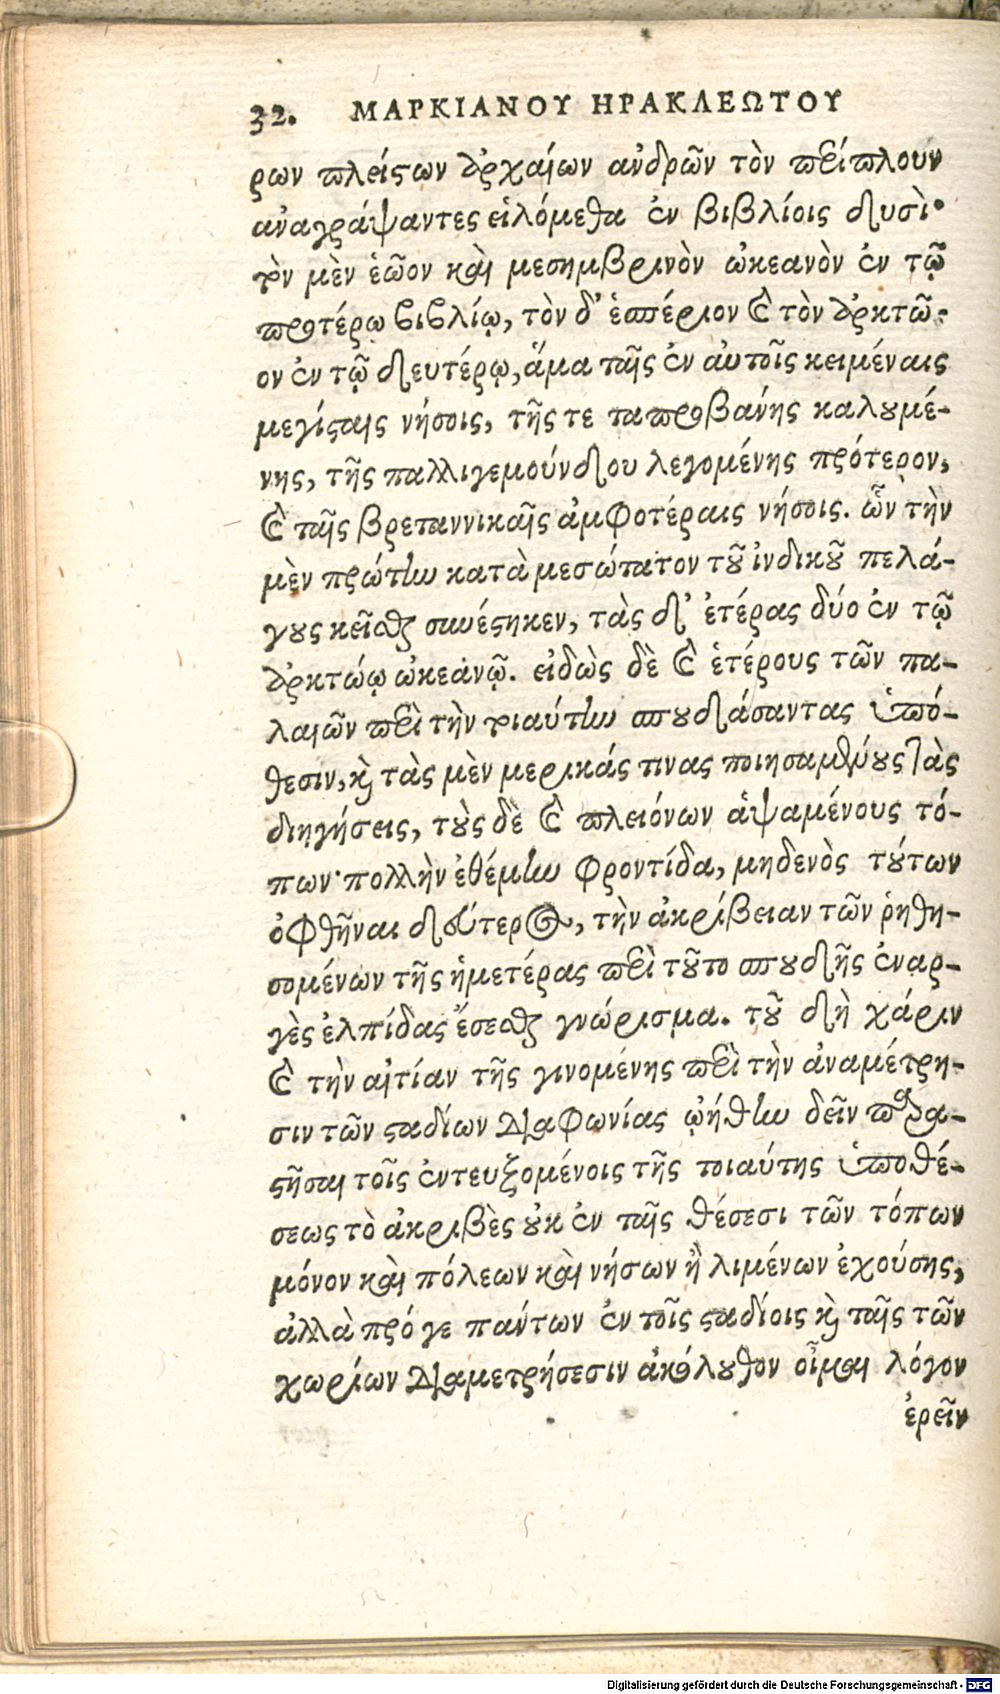 32. ΜΑΡΚΙΑΝΟΥ ΗΡΑΚΛΕΩΤΟΥ
ρων πλείστων ἀρχαίων ἀνδρῶν τὸν περίπλουν
ἀναγράψαντες εἱλόμεθα ἐν βιβλίοις δυσὶ·
τὸν μὲν ἑῶον καὶ μεσημβρινὸν ὠκεανὸν ἐν τῷ
προτέρῳ βιβλίῳ, τὸν δ' ἑσπέριον καὶ τὸν ἀρκτῶ-
ον ἐν τῷ δευτέρῳ, ἅμα ταῖς ἐν αὐτοῖς κειμέναις
μεγίσταις νήσοις, τῆς τε ταπροβάνης καλουμέ-
νης, τῆς παλλιγεμούνδου λεγομένης πρότερον,
καὶ ταῖς βρεταννικαῖς ἀμφοτέραις νήσοις. ὧν τὴν
μὲν πρώτην κατὰ μεσώτατον τοῦ ἰνδικοῦ πελά-
γους κεῖσθαι συνέστηκεν, τὰς δ' ἑτέρας δύο ἐν τῷ
ἀρκτώῳ ὠκεανῷ. εἰδὼς δὲ καὶ ἑτέρους τῶν πα-
λαιῶν περὶ τὴν τοιαύτην σπουδάσαντας ὑπό-
θεσιν, καὶ τὰς μὲν μερικάς τινας ποιησαμένους τὰς
διηγήσεις, τοὺς δὲ καὶ πλειόνων ἁψαμένους τό-
πων· πολλὴν ἐθέμην φροντίδα, μηδενὸς τούτων
ὀφθῆναι δεύτερος, τὴν ἀκρίβειαν τῶν ῥηθη-
σομένων τῆς ἡμετέρας περὶ τοῦτο σπουδῆς ἐναρ-
γὲς ἐλπίδας ἔσεσθαι γνώρισμα. τοῦ δὴ χάριν
καὶ τὴν αἰτίαν τῆς γινομένης περὶ τὴν ἀναμέτρη-
σιν τῶν σταδίων διαφωνίας ᾠήθην δεῖν παρα-
στῆσαι τοῖς ἐντευξομένοις τῆς τοιαύτης ὑποθέ-
σεως τὸ ἀκριβὲς οὐκ ἐν ταῖς θέσεσι τῶν τόπων
μόνον καὶ πόλεων καὶ νήσων ἢ λιμένων ἐχούσης,
ἀλλὰ πρό γε πάντων ἐν τοῖς σταδίοις καὶ ταῖς τῶν
χωρίων διαμετρήσεσιν ἀκόλουθον οἶμαι λόγον
ἐρεῖν
Digitalisierung gefördert durch die Deutsche Forschungsgemeinschaft - DFG